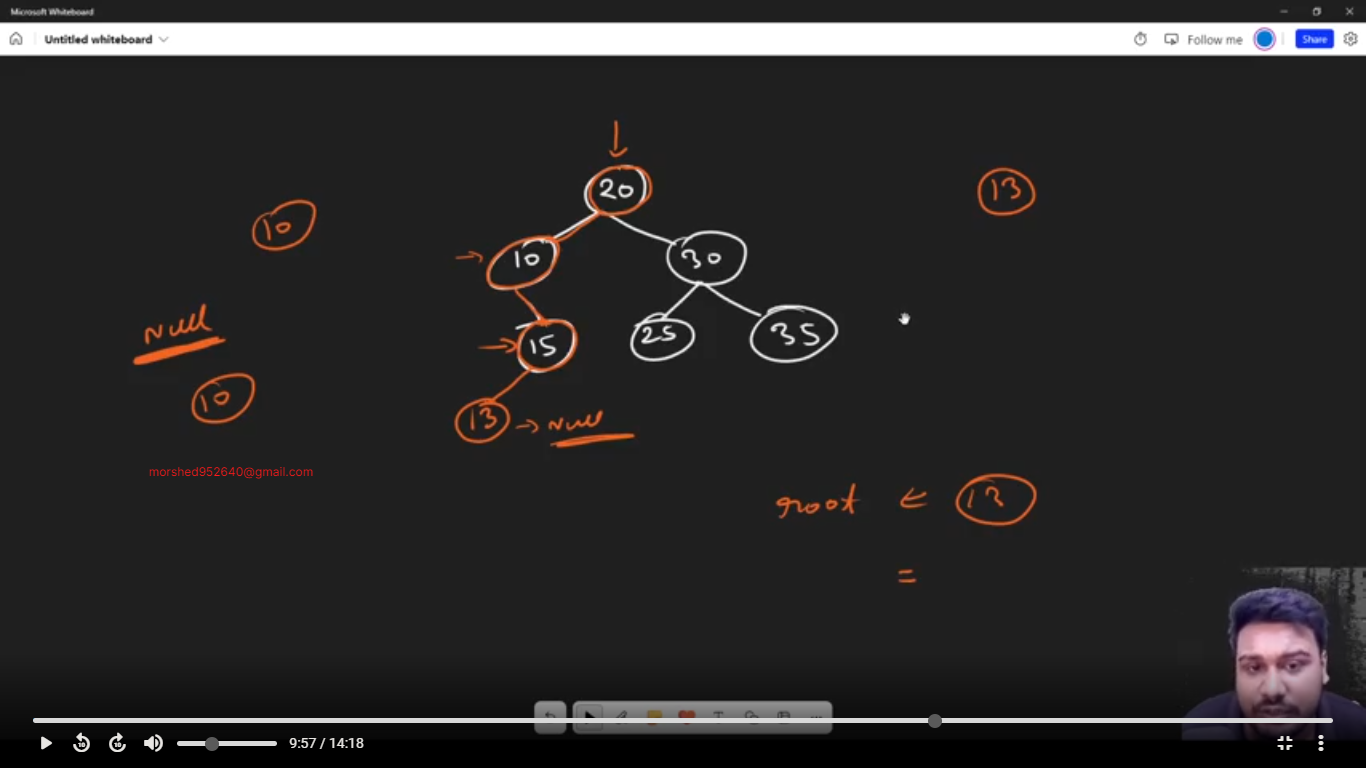 Microsoft Whiteboard
Untitled whiteboard
Follow me
Share
20
13
10
10
30
Null
15
25
35
10
13 → Null
morshed952640@gmail.com
root ← 13
=
10
10
9:57 / 14:18